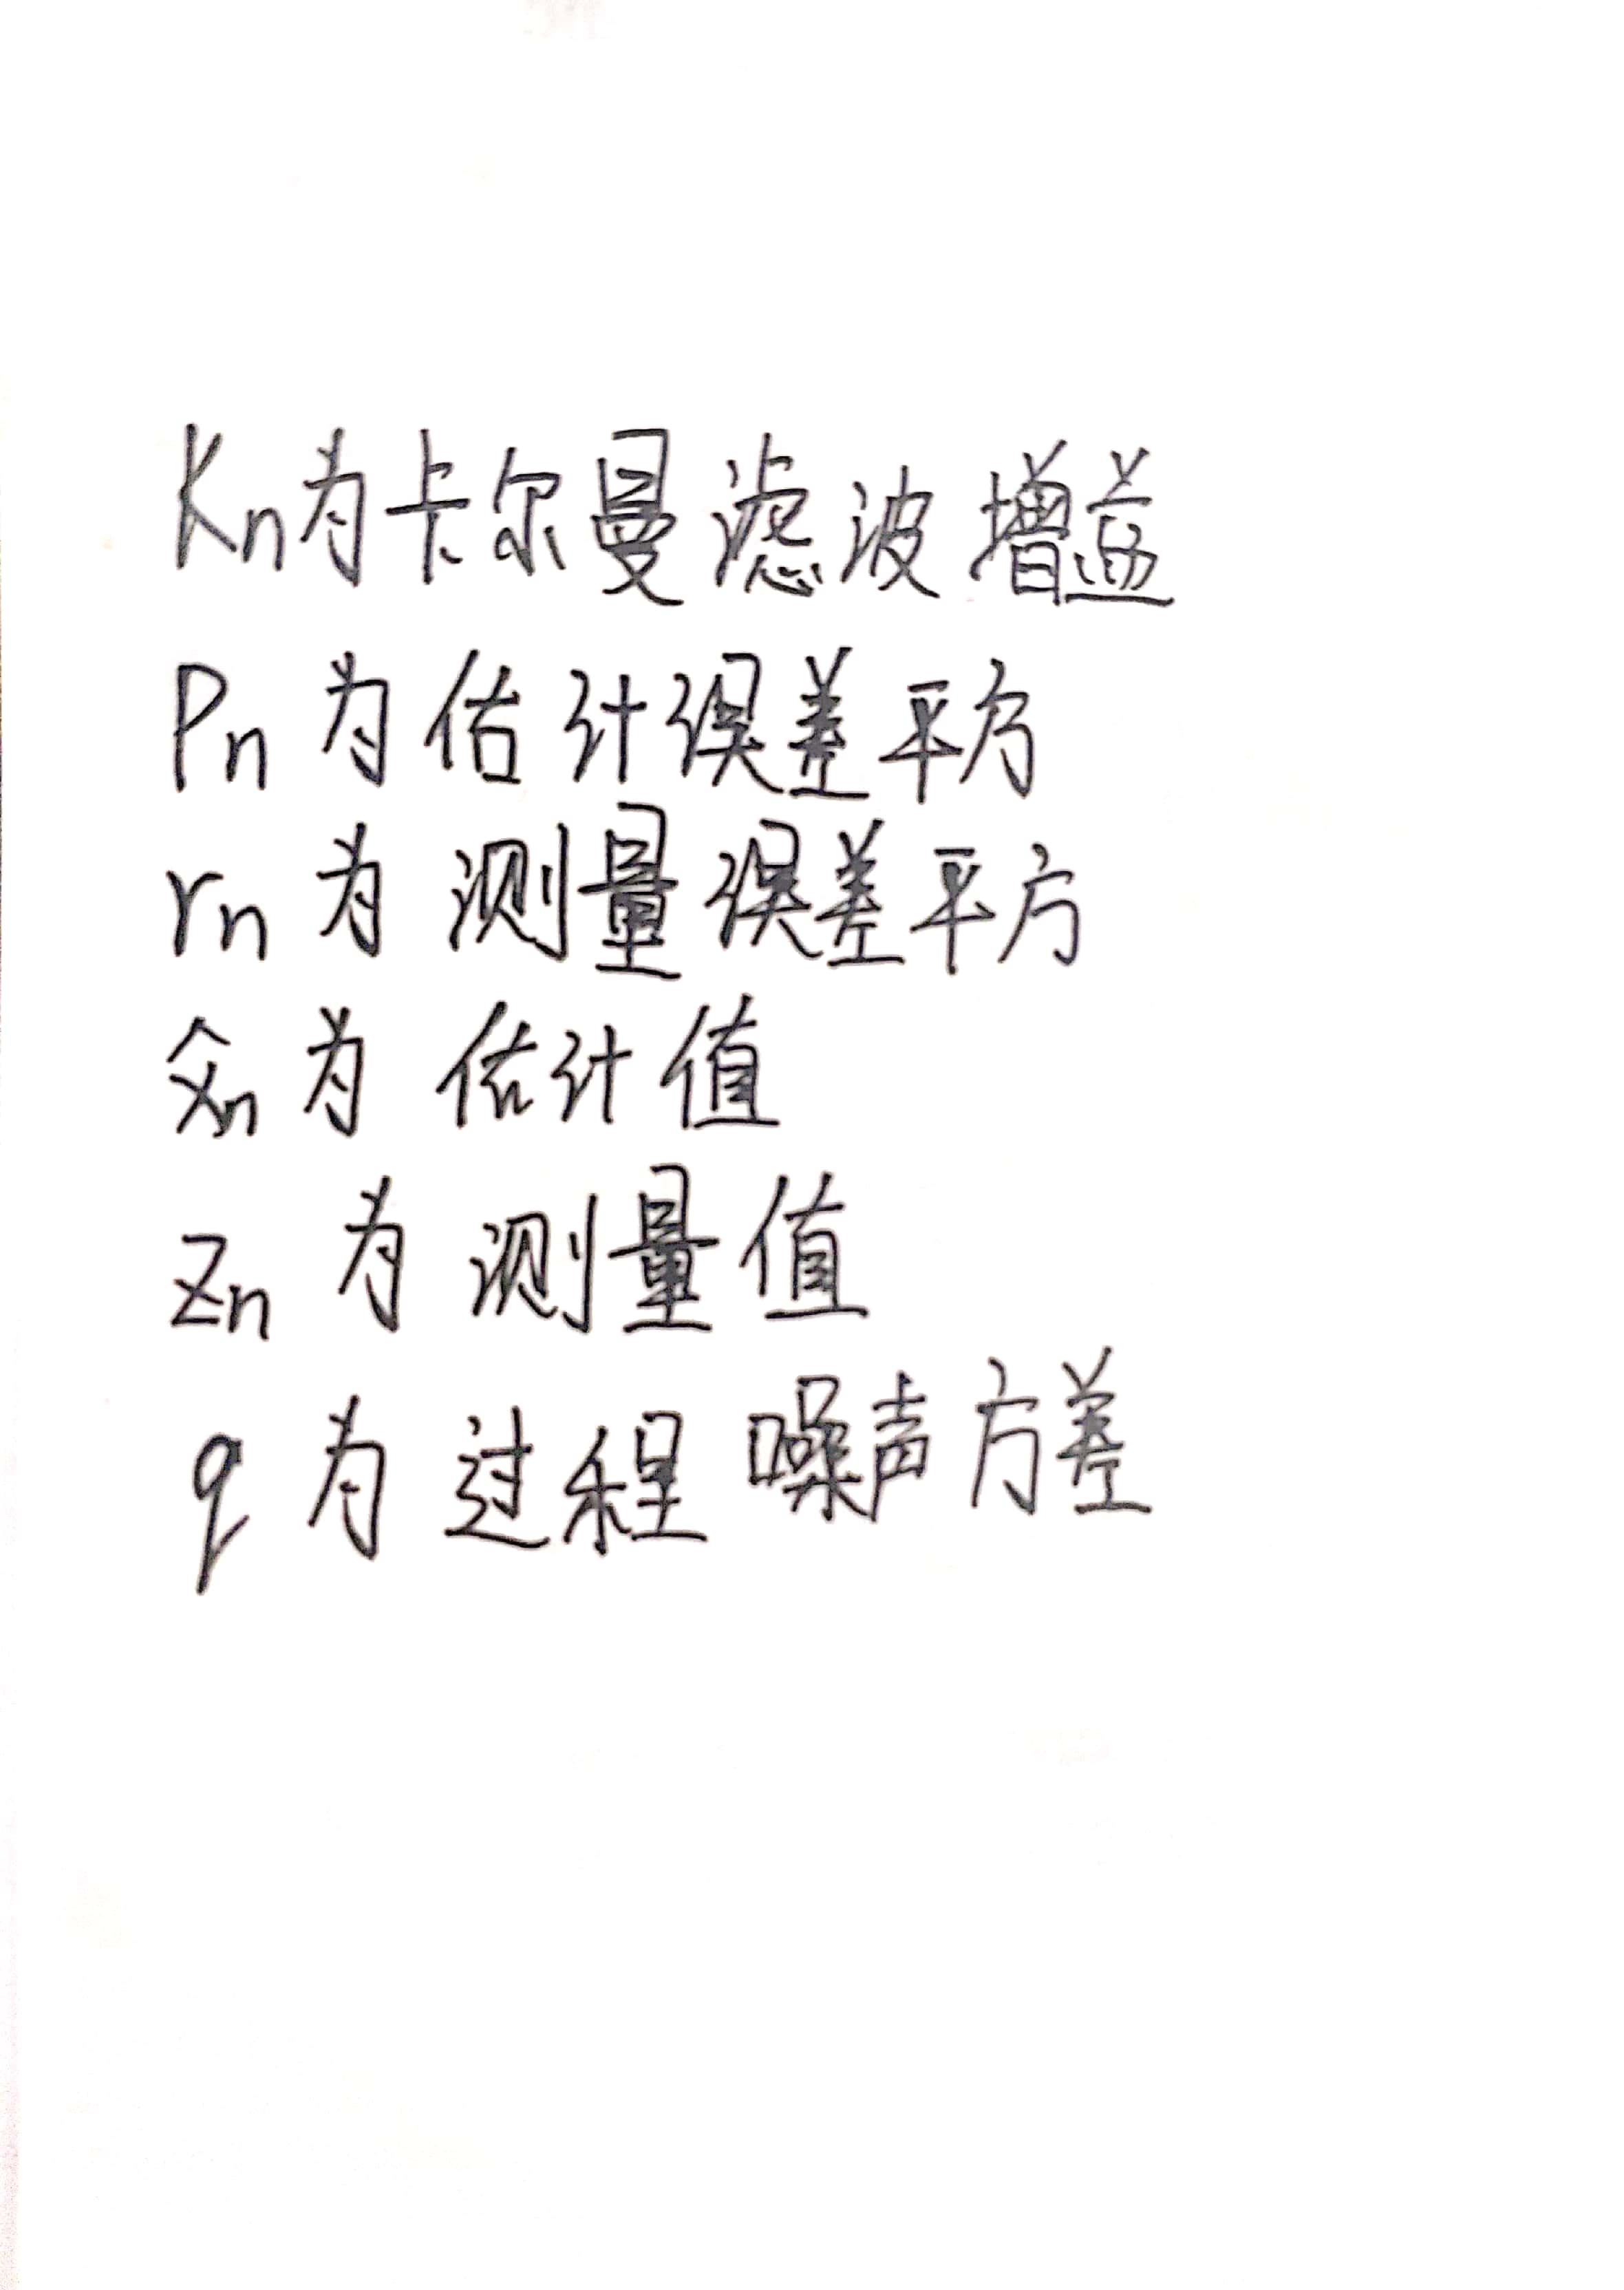 Kn为卡尔曼滤波增益
Pn为估计误差平方
rn为测量误差平方
x̂n为估计值
Zn为测量值
q为过程噪声方差